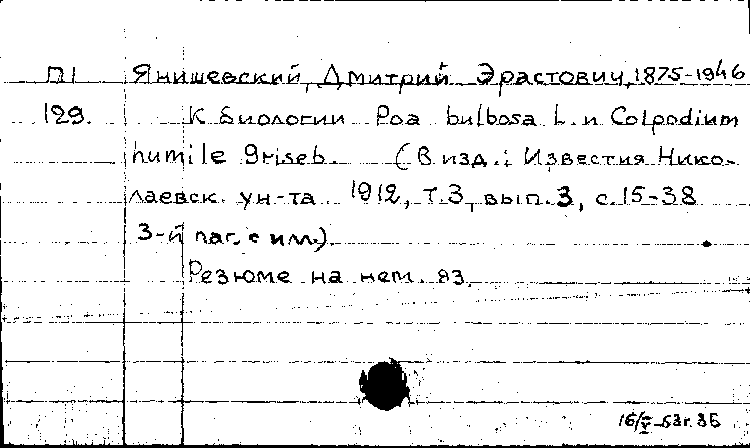 П1 Янишевский, Дмитрий Эрастович, 1875-1946
129. К биологии Poa bulbosa L. и Colpodium
humile Griseb. (В изд.: Известия Нико-
лаевск. ун-та 1912, Т.3, вып.3, с.15-38
3-й паг. с илл.)
Резюме на нем. яз.
16/V-53г.